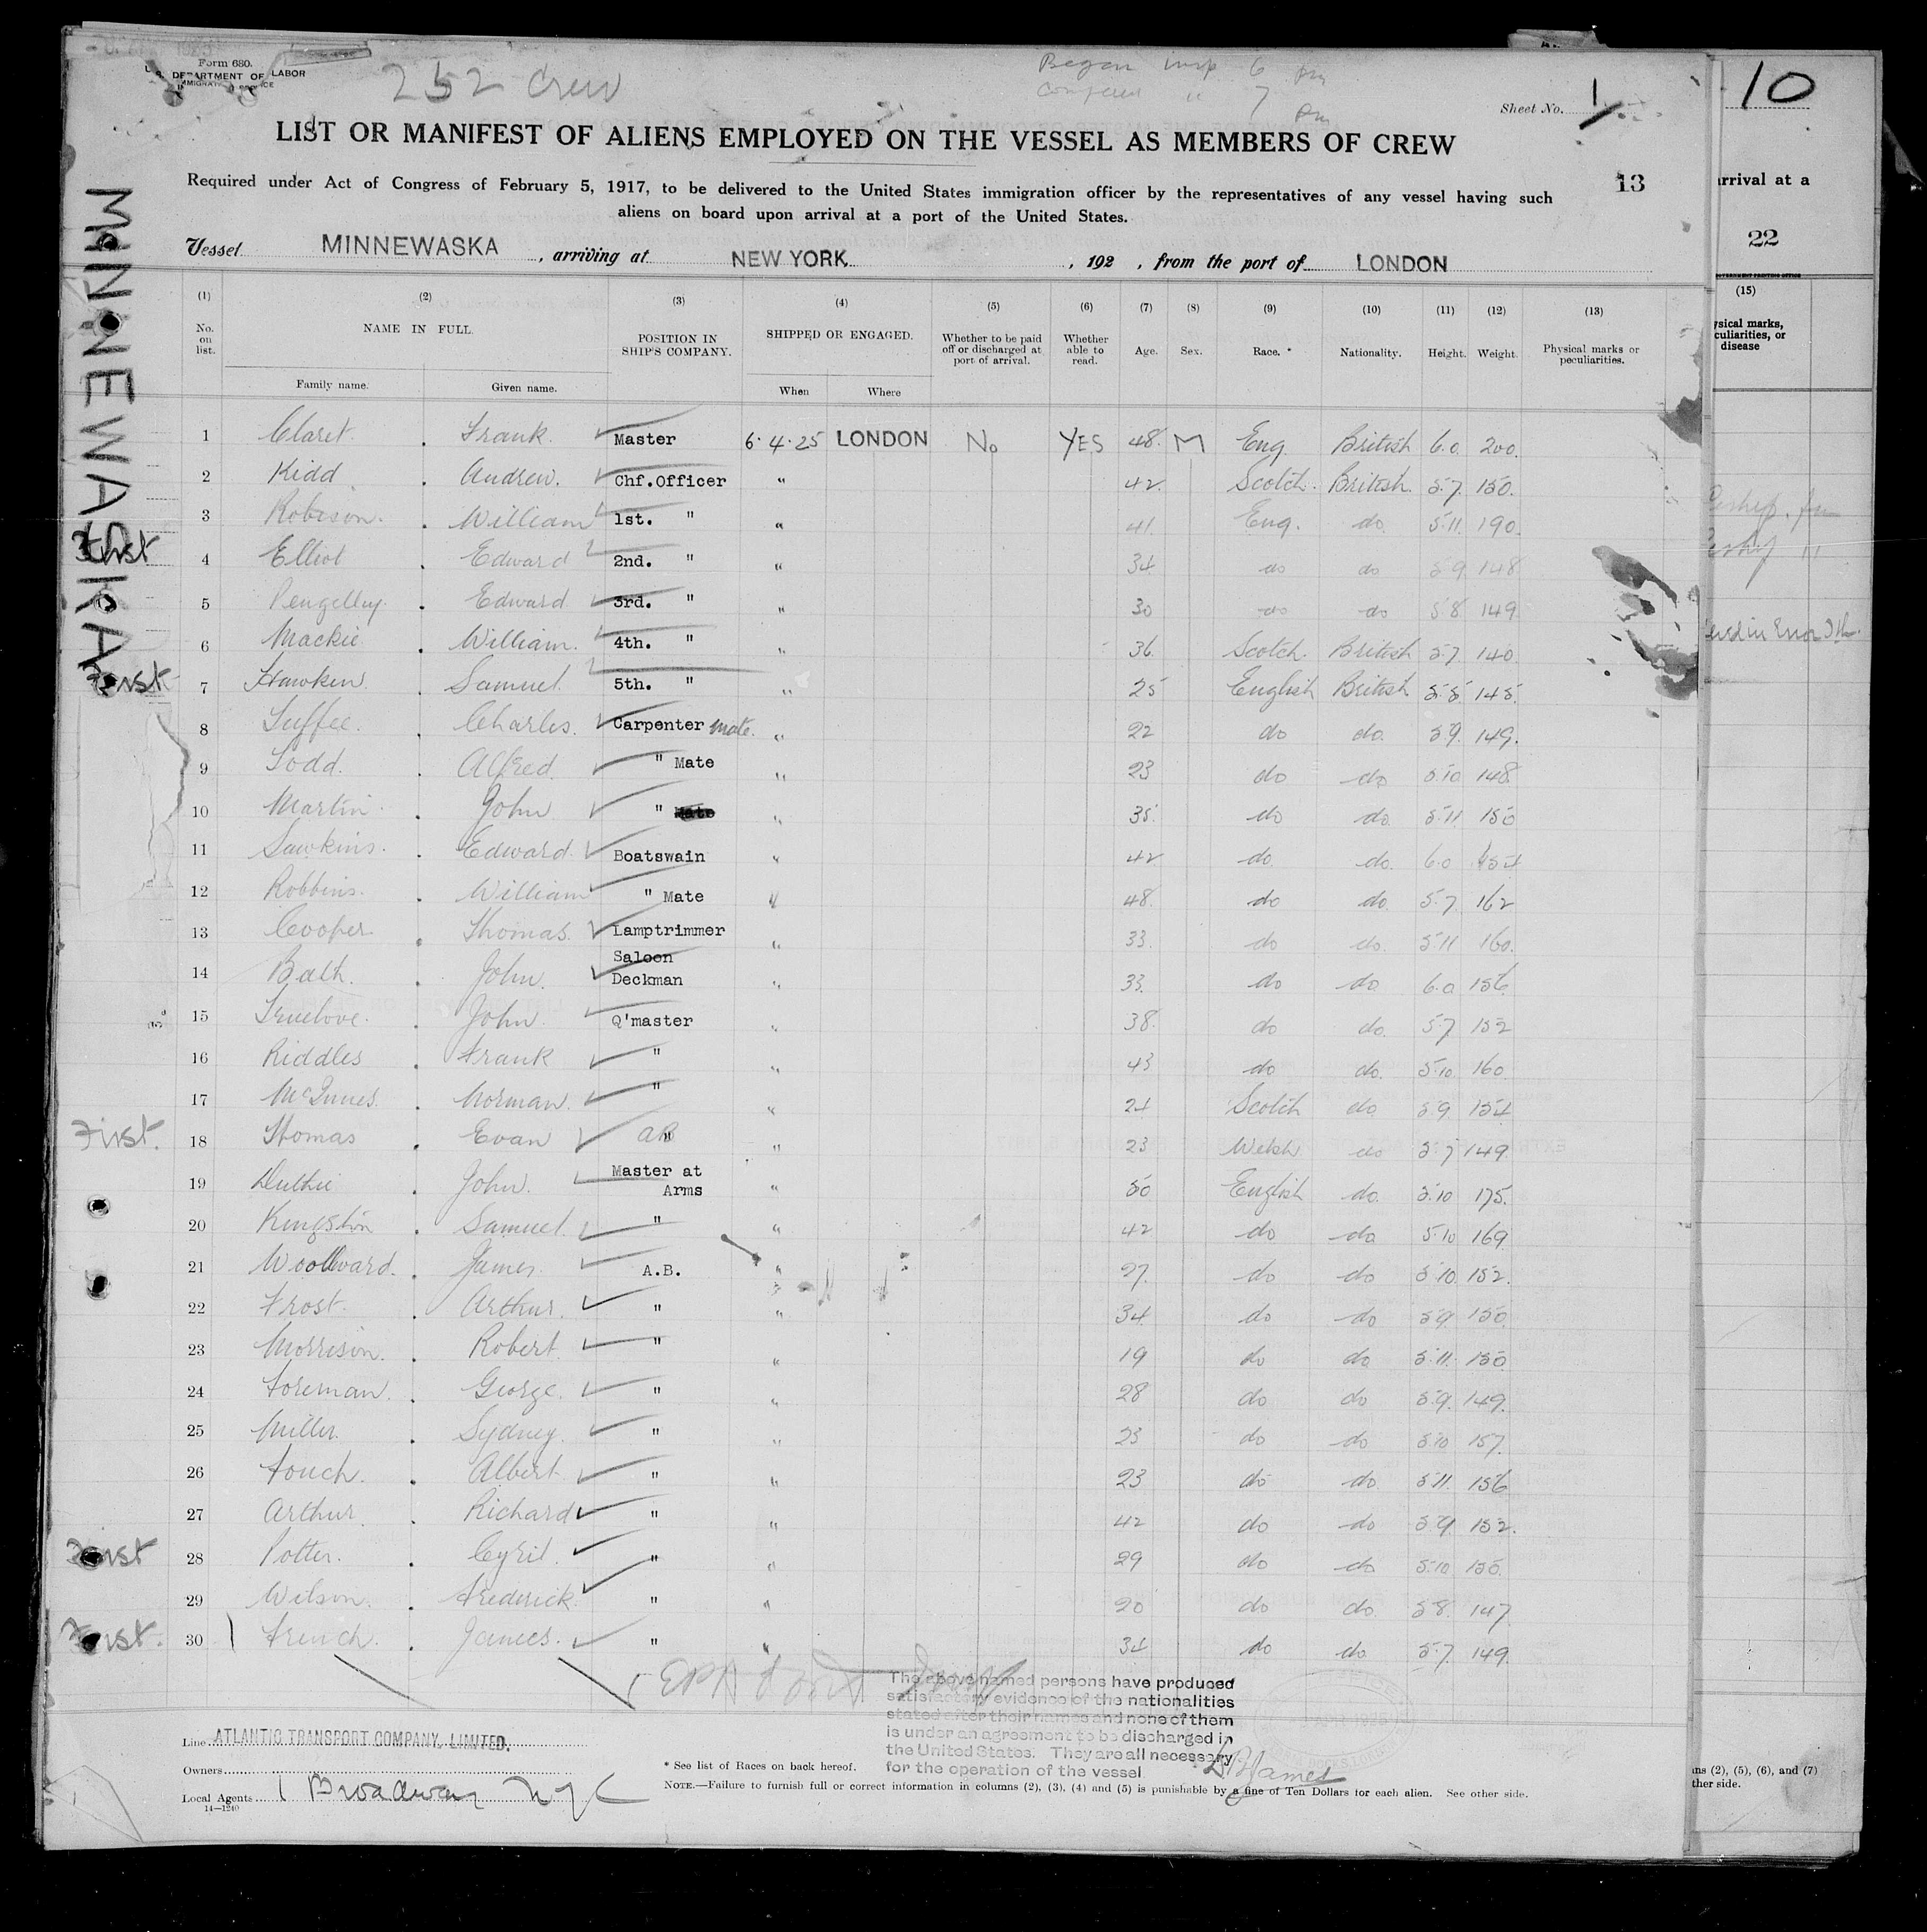 Form 680.
U. S. DEPARTMENT OF LABOR
IMMIGRATION SERVICE
252 Crew
Began insp 6 pm
" 7 pm
Sheet No. 1
LIST OR MANIFEST OF ALIENS EMPLOYED ON THE VESSEL AS MEMBERS OF CREW
Required under Act of Congress of February 5, 1917, to be delivered to the United States immigration officer by the representatives of any vessel having such
aliens on board upon arrival at a port of the United States.
13
Vessel MINNEWASKA , arriving at NEW YORK , 192 , from the port of LONDON
MINNEWASKA
(1) (2) (3) (4) (5) (6) (7) (8) (9) (10) (11) (12) (13)
No. on list. NAME IN FULL. POSITION IN SHIP'S COMPANY. SHIPPED OR ENGAGED. Whether to be paid off or discharged at port of arrival. Whether able to read. Age. Sex. Race. * Nationality. Height. Weight. Physical marks or peculiarities.
Family name. Given name. When Where
1 Claret. Frank. Master 6.4.25 LONDON No YES 48. M Eng. British 6.0. 200.
2 Kidd . Andrew. Chf.Officer " 42. Scotch. British. 5.7. 150.
3 Robison. . William 1st. " " 41. Eng. do 5.11. 190.
First 4 Elliot . Edward 2nd. " " 34 do do 5.9 148
5 Pengelley. . Edward 3rd. " " 30 do do 5.8 149
6 Mackie . William. 4th. " " 36 Scotch. British 5.7 140
First 7 Hawken. . Samuel. 5th. " " 25 English British 5.5. 145.
8 Suffee. . Charles. Carpenter mate. " 22 do do. 5.9. 149.
9 Todd. . Alfred. " Mate " 23 do do 5.10 148
10 Martin. . John " " 35. do do. 5.11 150
11 Sawkins. . Edward. Boatswain " 42 do do. 6.0 154
12 Robbins. . William " Mate " 48. do do. 5.7. 162
13 Cooper . Thomas. Lamptrimmer " 33. do do. 5.11 160.
14 . John. Saloon Deckman " 33. do do 6.0 156
15 Truelove. . John. Q'master " 38. do do. 5.7 152
16 Riddles . Frank " " 43 do do. 5.10 160
17 McInnes. . Norman. " " 24 Scotch do 5.9. 154
First. 18 Thomas . Evan AB " 23 Welsh do 5.7 149
19 Duthie . John. Master at Arms " 50 English do. 5.10 175.
20 Kingston . Samuel. " " 42 do do 5.10 169
21 Woollward. . James. A.B. " 27. do do 5.10. 152.
22 Frost. . Arthur. " " 34. do do 5.9. 150
23 Morrison. . Robert. " " 19 do do 5.11. 150
24 Foreman. . George. " " 28 do do 5.9. 149.
25 Miller. . Sydney. " " 23 do do 5.10 157.
26 Fouch. . Albert. " " 23 do do 5.11. 156
27 Arthur. . Richard " " 42 do do 5.9. 152.
First 28 Potter. . Cyril. " " 29 do do 5.10 150.
29 Wilson. . Frederick. " " 20 do do. 5.8. 147
First. 30 French. . James. " " 34 do do. 5.7. 149.
The above named persons have produced
satisfactory evidence of the nationalities
stated after their names and none of them
is under an agreement to be discharged in
the United States. They are all necessary
for the operation of the vessel.
Line ATLANTIC TRANSPORT COMPANY, LIMITED.
Owners
Local Agents 1 Broadway NYC
14—1240
* See list of Races on back hereof.
NOTE.—Failure to furnish full or correct information in columns (2), (3), (4) and (5) is punishable by a fine of Ten Dollars for each alien. See other side.
10
arrival at a
22
(15)
ysical marks,
culiarities, or
disease
ns (2), (5), (6), and (7)
ther side.